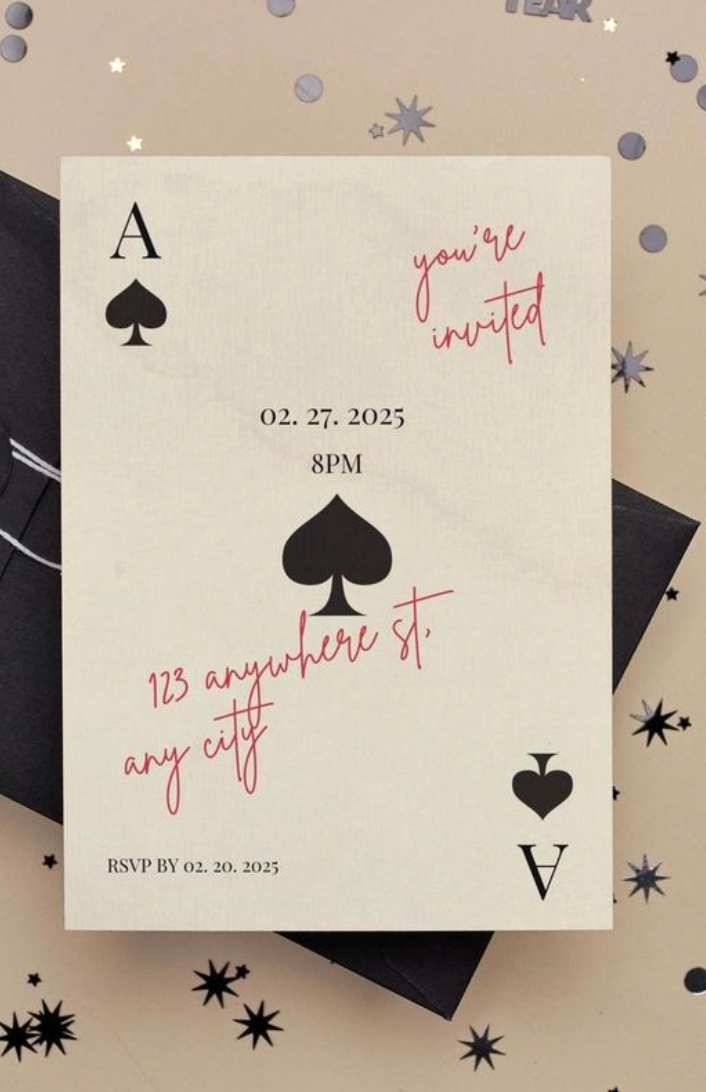 YEAR
A
you're
invited
02. 27. 2025
8PM
123 anywhere st,
any city
RSVP BY 02. 20. 2025
A